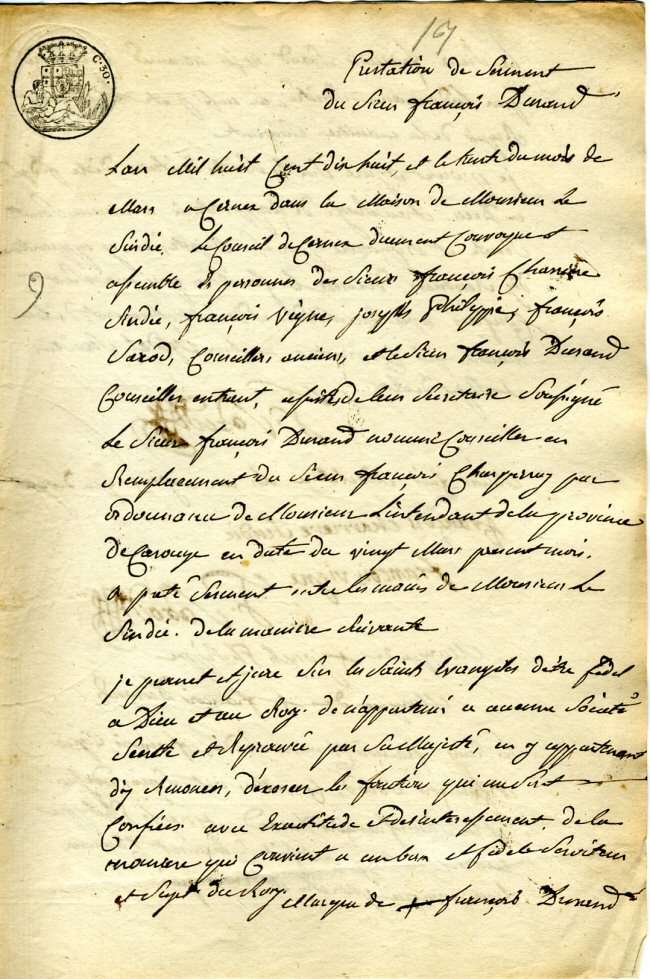 167
C. 30.
Prestation de Serment
du Sieur françois Durand
Lan Mil huit Cent dix huit, et le trente du mois de
Mars a Cernex dans la Maison de Monsieur Le
Sindic. Le Conseil de Cernex duement Convoqué et
assemblé es personnes des Sieurs françois Charrière
Sindic, françois vigne, joseph philippe, françois
Saxod, Conseillers anciens, et le Sieur françois Durand
Conseiller entrant, assistés de leur Secretaire Soussigné
Le Sieur françois Durand nommé Conseiller en
Remplacement du Sieur françois par
ordonnance de Monsieur Lintendant de la province
de Carouge en date du vingt Mars present mois.
a preté Serment entre les mains de Monsieur Le
Sindic. de la maniere Suivante
je promet et jure Sur les Saints Evangiles détre fidel
a Dieu et au Roy. de nappartenir a aucune Société
Secrette et Reprouvée par Sa Majesté, en y appartenant
dy Renoncer, dexercer les fonction qui me Sont
Confiées avec Exactitude et Desinteressement de la
maniere qui Convient a un bon et fidele Serviteur
et Sujet du Roy. Marque de + françois Durand
9